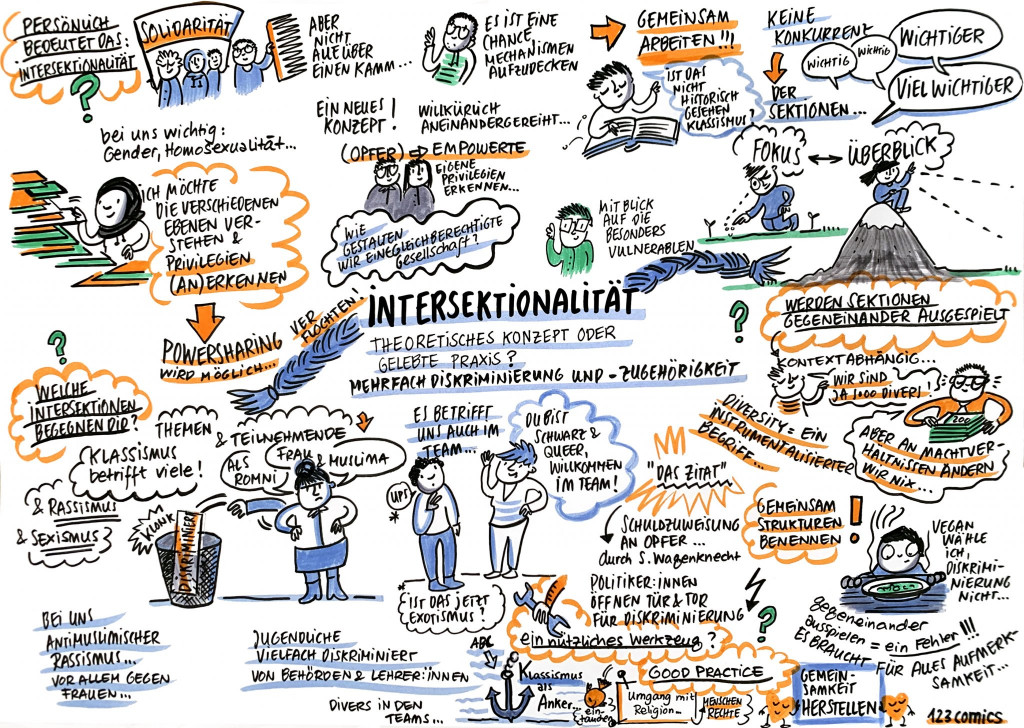 PERSÖNLICH
BEDEUTET DAS:
INTERSEKTIONALITÄT
?
SOLIDARITÄT
ABER
NICHT
ALLE ÜBER
EINEN KAMM...
ES IST EINE
CHANCE
MECHANISMEN
AUFZUDECKEN
GEMEINSAM
ARBEITEN!!!
IST DAS
NICHT
HISTORISCH
GESEHEN
KLASSISMUS?
KEINE
KONKURRENZ
DER
SEKTIONEN...
WICHTIG
WICHTIG
WICHTIGER
VIEL WICHTIGER
bei uns wichtig:
Gender, Homosexualität...
EIN NEUES
KONZEPT!
WILLKÜRLICH
ANEINANDERGEREIHT...
(OPFER) ⇨ EMPOWERTE
EIGENE
PRIVILEGIEN
ERKENNEN...
WIE
GESTALTEN
WIR EINE GLEICHBERECHTIGTE
Gesellschaft?
FOKUS ↔ ÜBERBLICK
ICH MÖCHTE
DIE VERSCHIEDENEN
EBENEN VER-
STEHEN &
PRIVILEGIEN
(AN)ERKENNEN
MIT BLICK
AUF DIE
BESONDERS
VULNERABLEN
POWERSHARING
WIRD MÖGLICH...
VER
FLOCHTEN!
INTERSEKTIONALITÄT
THEORETISCHES KONZEPT ODER
GELEBTE PRAXIS?
MEHRFACH DISKRIMINIERUNG UND -ZUGEHÖRIGKEIT
?
WERDEN SEKTIONEN
GEGENEINANDER AUSGESPIELT
KONTEXTABHÄNGIG...
WIR SIND
JA SOOO DIVERS!
1200
ABER AN MACHTVER-
HÄLTNISSEN ÄNDERN
WIR NIX...
DIVERSITY = EIN
INSTRUMENTALISIERTER
BEGRIFF...
?
WELCHE
INTERSEKTIONEN
BEGEGNEN DIR?
THEMEN
& TEILNEHMENDE
KLASSISMUS
betrifft viele!
& RASSISMUS
& SEXISMUS
ALS
ROMNI
FRAU & MUSLIMA
KLONK
DISKRIMINIERT
ES BETRIFFT
UNS AUCH IM
TEAM...
UPS
*
DU BIST
SCHWARZ &
QUEER,
WILLKOMMEN
IM TEAM!
* IST DAS JETZT
EXOTISMUS?
"DAS ZITAT"
SCHULDZUWEISUNG
AN OPFER...
durch S. Wagenknecht
POLITIKER:INNEN
ÖFFNEN TÜR & TOR
FÜR DISKRIMINIERUNG
GEMEINSAM
STRUKTUREN
BENENNEN
!
VEGAN
WÄHLE
ICH,
DISKRIMI-
NIERUNG
NICHT...
gegeneinander
ausspielen = ein Fehler!!!
ES BRAUCHT FÜR ALLES AUFMERK-
SAMKEIT...
BEI UNS
ANTIMUSLIMISCHER
RASSISMUS...
VOR ALLEM GEGEN
FRAUEN...
JUGENDLICHE
VIELFACH DISKRIMINIERT
VON BEHÖRDEN & LEHRER:INNEN
DIVERS IN DEN
TEAMS...
ein nützliches Werkzeug?
?
Klassismus
als
Anker...
GOOD PRACTICE
ein-
tauchen
Umgang mit
Religion...
MENSCHEN
RECHTE
GEMEIN-
SAMKEIT
HERSTELLEN
123comics